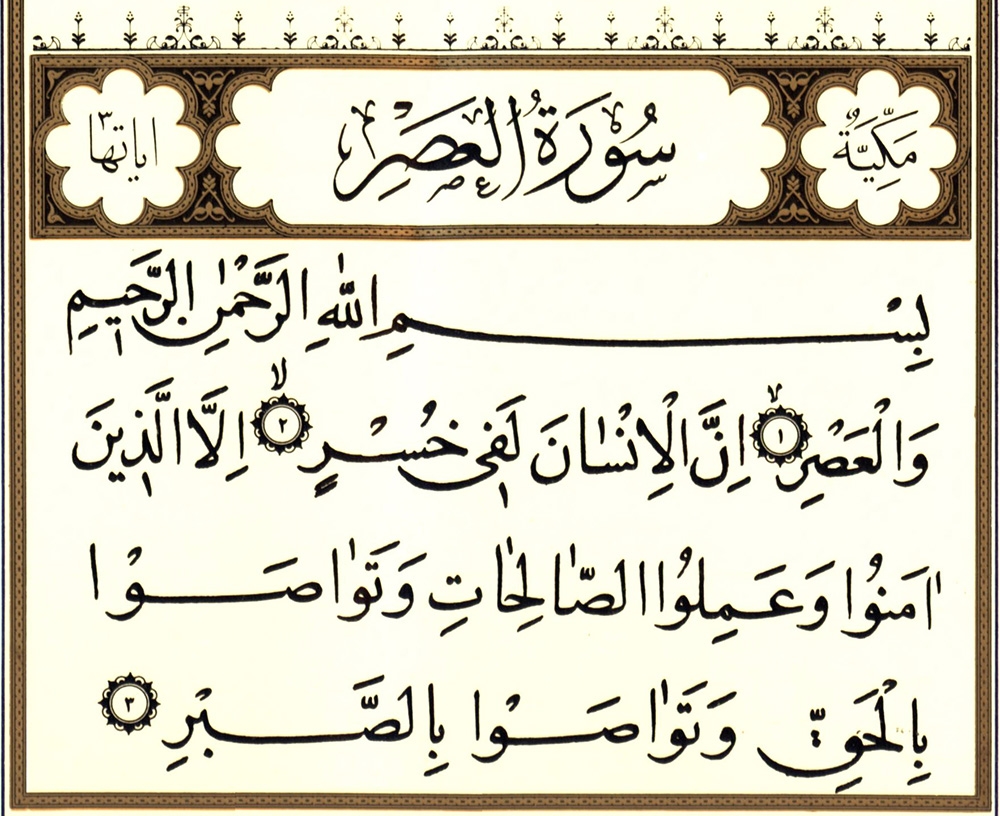 مَكِّيَّةٌ سُورَةُ الْعَصْرِ اياتها ٣
بِسْمِ اللّٰهِ الرَّحْمٰنِ الرَّحٖيمِ
وَالْعَصْرِ ١ اِنَّ الْاِنْسَانَ لَفٖى خُسْرٍ ٢ اِلَّا الَّذٖينَ
اٰمَنُوا وَعَمِلُوا الصَّالِحَاتِ وَتَوَاصَوْا
بِالْحَقِّ وَتَوَاصَوْا بِالصَّبْرِ ٣